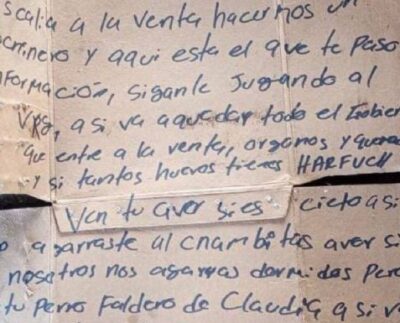 scalia a la venta hacernos un
ocrinero y aqui esta el que te paso
nformación, siganle Jugando al
Vrg, asi va aquedar todo el Gobier
que entre a la venta, organos y quere
y si tantos huevos tienes HARFUCH
Ven tu aver sies cieto asi
o agarraste al cnambitas aver si
nosotros nos agarras dormidos Pero
tu Perro Faldero de Claudia asi v